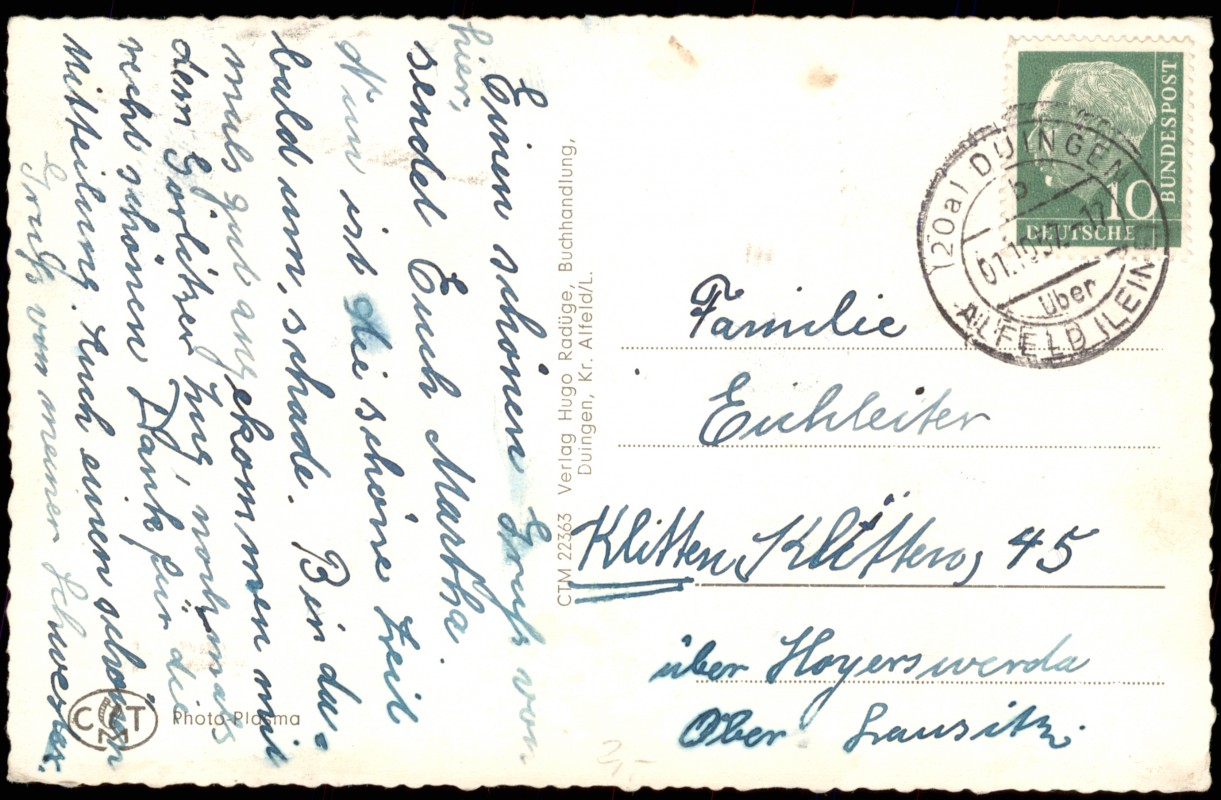 Einen schönen Gruß von
hier,
sendet Euch Martha
Nun ist die schöne Zeit
bald um, schade. Bin da-
mals gut angekommen mit
dem Görlitzer Zug nochmals
recht schönen Dank für die
Mitteilung. Auch einen schönen
Gruß von meiner Schwester.
CTM 22363 Verlag Hugo Radüge, Buchhandlung,
Duingen, Kr. Alfeld/L.
CMT Photo-Plasma
BUNDESPOST
10
DEUTSCHE
(20a) DUINGEN
b
01.10.57.-17
über
ALFELD (LEINE)
Familie
Eichleiter
Klitten, Klitten, 45
über Hoyerswerda
Ober Lausitz.
2,-